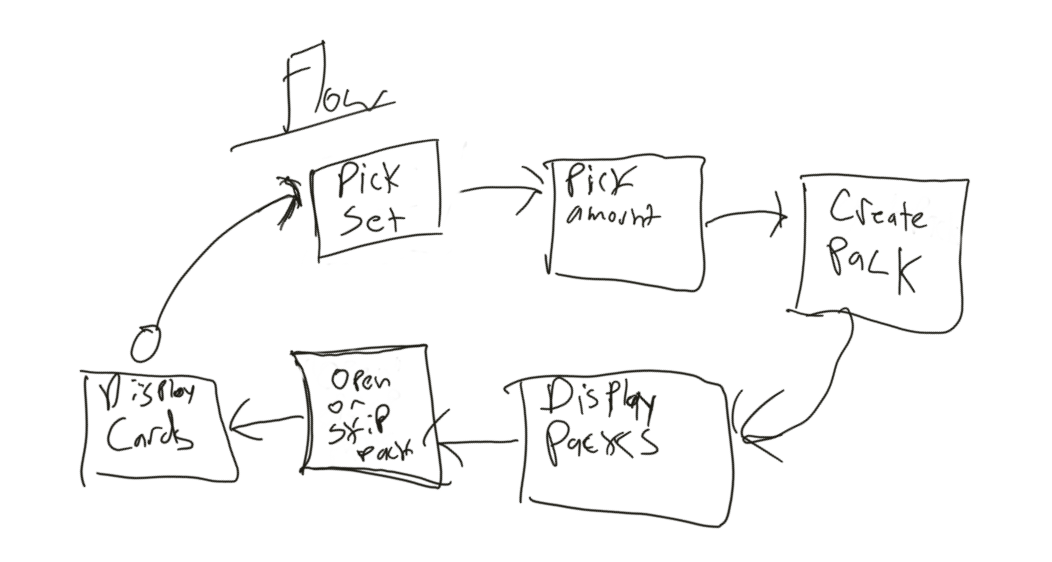 Flow
Pick
Set
Pick
amount
Create
Pack
Display
Packs
Open
or
skip
pack
Display
Cards